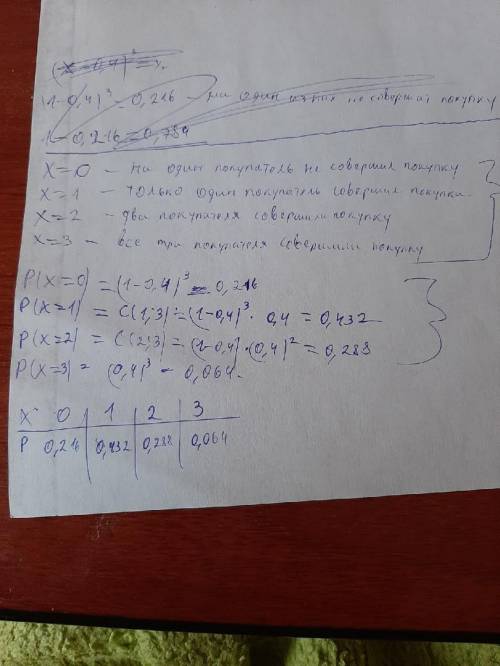 (1-0,4)³ = 0,216 - ни один из них не совершит покупку
1-0,216=0,784
X=0 - ни один покупатель не совершил покупку
X=1 - только один покупатель совершил покупки.
X=2 - два покупателя совершили покупку
X=3 - все три покупателя совершили покупку
P(X=0) = (1-0,4)³ = 0,216
P(X=1) = C(1;3) · (1-0,4)³ · 0,4 = 0,432
P(X=2) = C(2;3) · (1-0,4) · (0,4)² = 0,288
P(X=3) = (0,4)³ = 0,064.
X 0 1 2 3
P 0,216 0,432 0,288 0,064